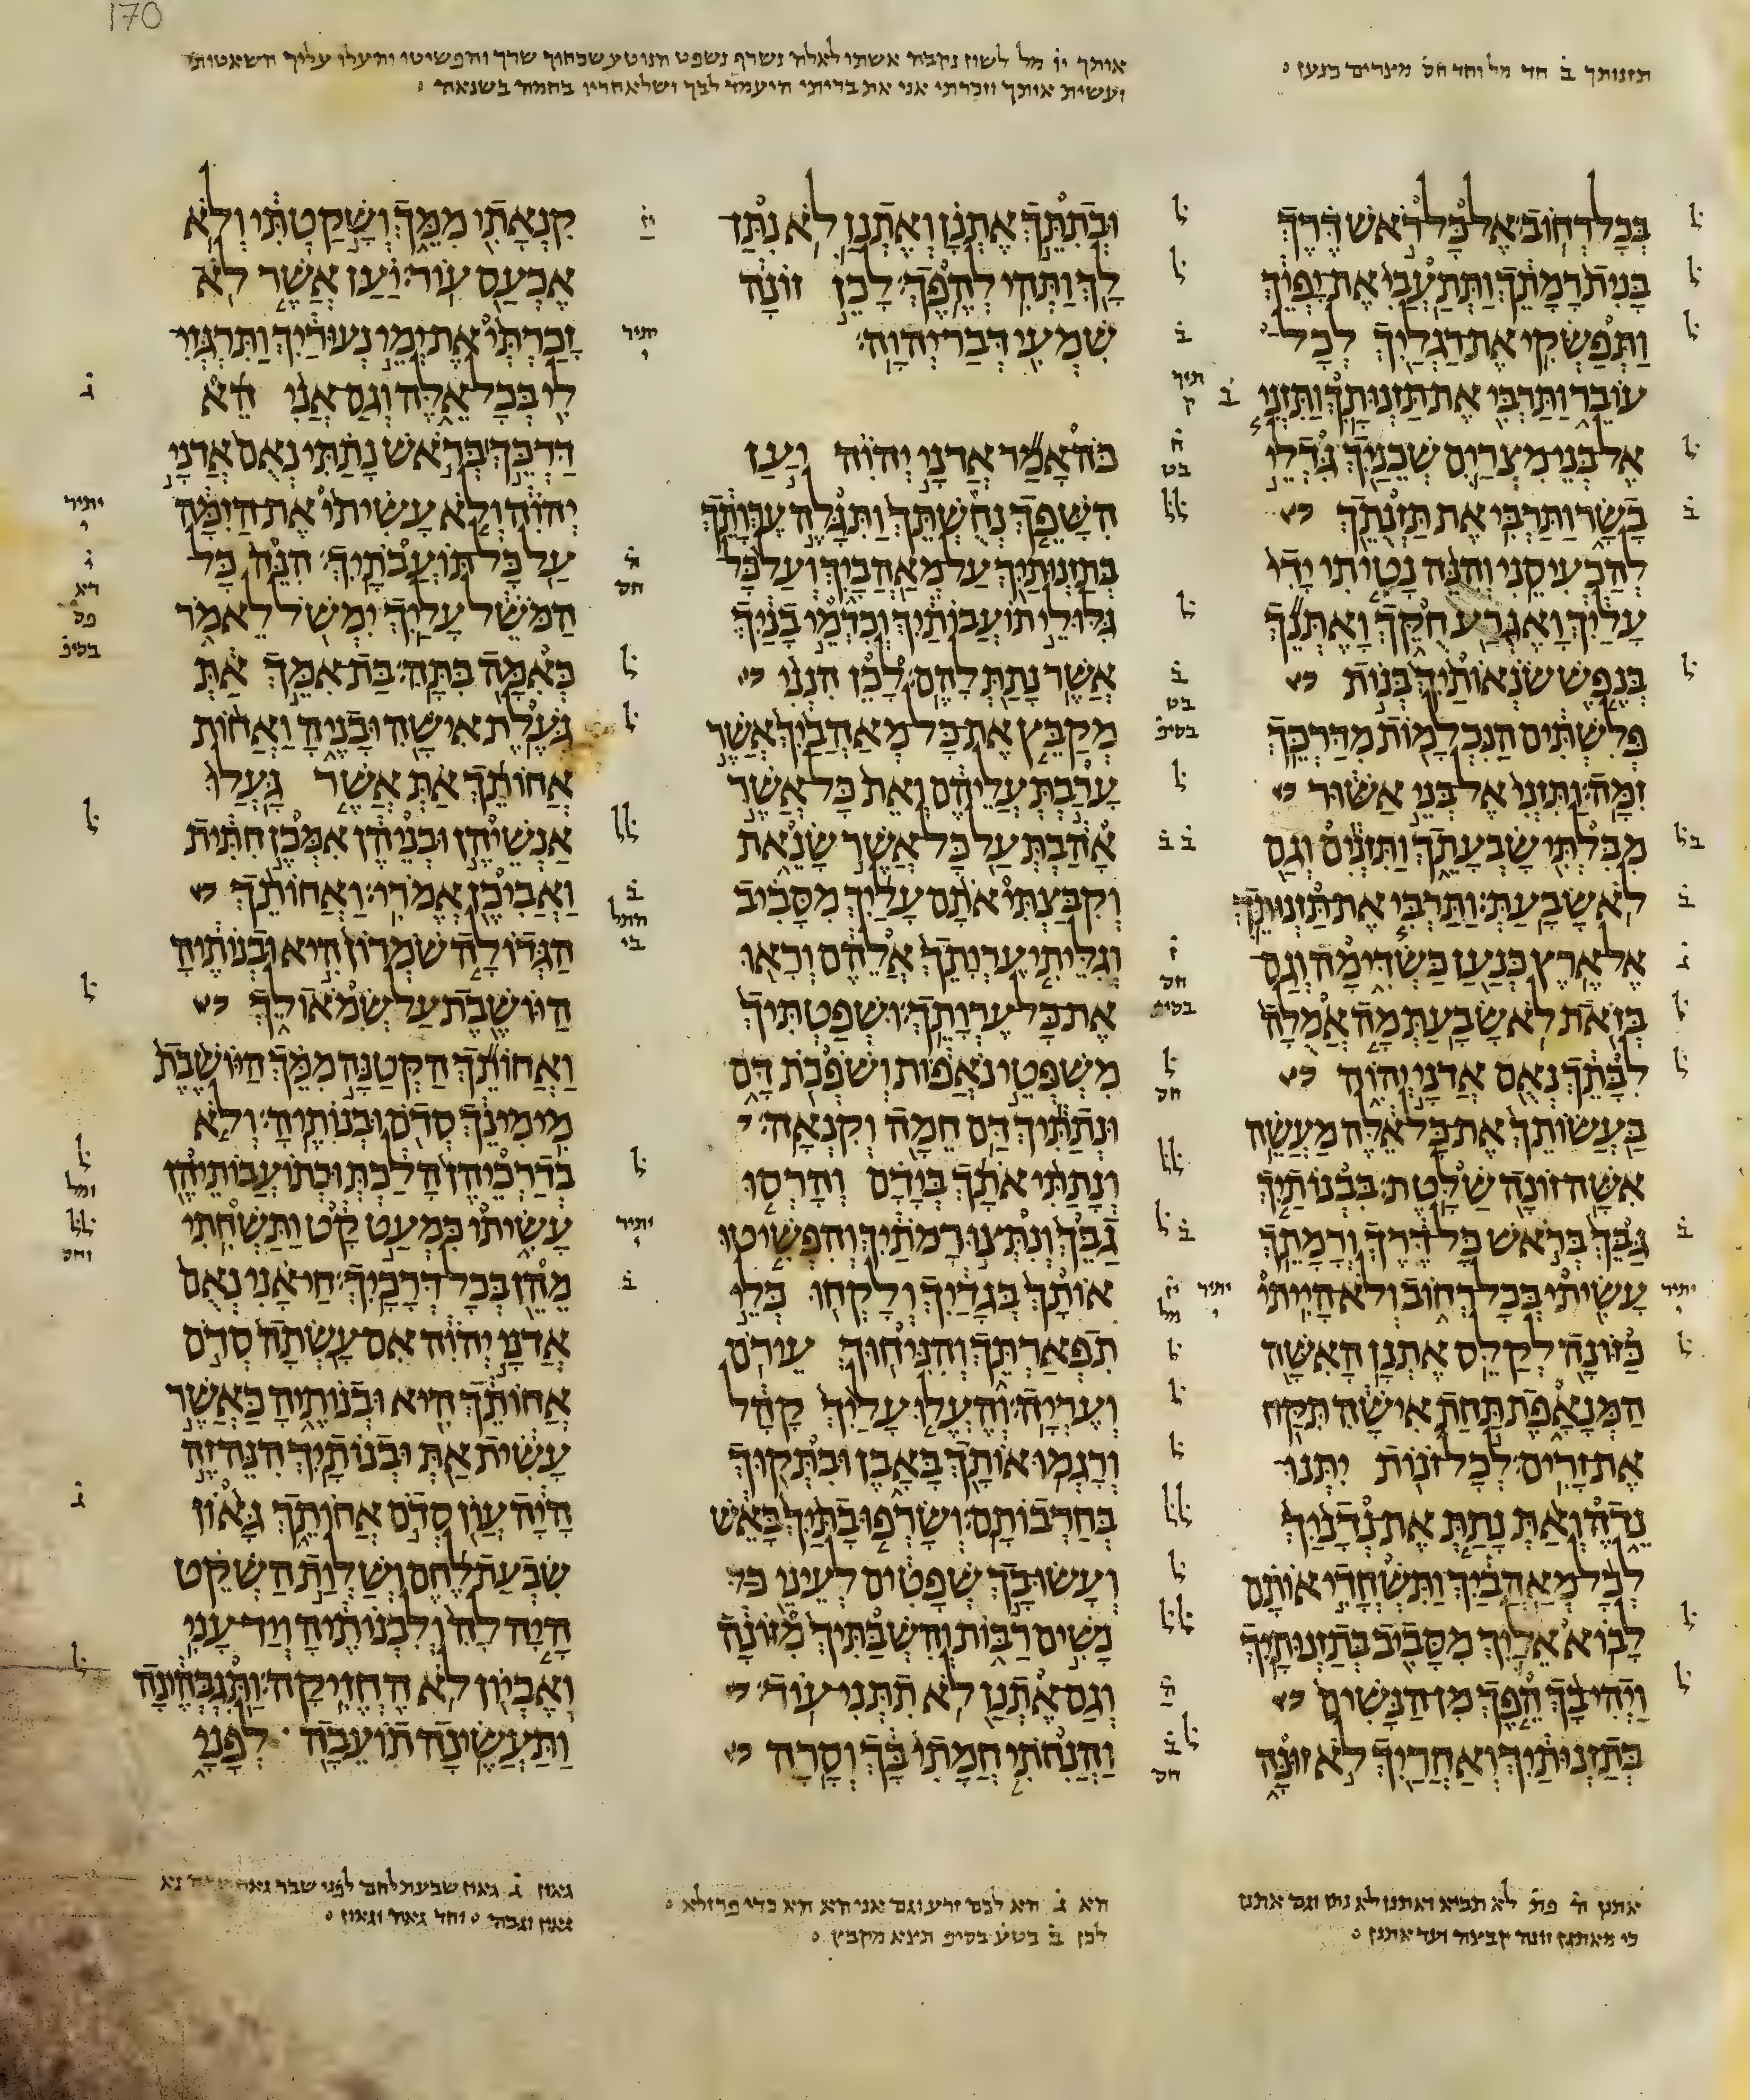 תזנותך ב̇ חד מל וחד חס מצרים כנען
אותך יו̇ מל לשוז נקבה אשתו לאלה נשרף נשפט הנוטע שכחוך שרך והפשיטו והעלו עליך השאטות
ועשית אותך וזכרתי אני את בריתי היעמד לבך ושלאחריו בחמה בשנאה
בכל רחוב׃ אל כל ראש דרך
בנית רמתך ותתעבי את יפיך
ותפשקי את רגליך לכל
עובר ותרבי את תזנותך׃ ותזני
אל בני מצרים שכניך גדלי
בשר ותרבי את תזנתך
להכעיסני׃ והנה נטיתי ידי
עליך ואגרע חקך ואתנך
בנפש שנאותיך בנות
פלשתים הנכלמות מדרכך
זמה׃ ותזני אל בני אשור
מבלתי שבעתך ותזנים וגם
לא שבעת׃ ותרבי את תזנותך
אל ארץ כנען כשדימה וגם
בזאת לא שבעת׃ מה אמלה
לבתך נאם אדני יהוה
בעשותך את כל אלה מעשה
אשה זונה שלטת׃ בבנותיך
גבך בראש כל דרך ורמתך
עשיתי בכל רחוב ולא הייתי
כזונה לקלס אתנן׃ האשה
המנאפת תחת אישה תקח
את זרים׃ לכל זנות יתנו
נדה ואת נתת את נדניך
לכל מאהביך ותשחדי אותם
לבוא אליך מסביב בתזנותיך׃
ויהי בך הפך מן הנשים
בתזנותיך ואחריך לא זונה
ובתתך אתנן ואתנן לא נתן
לך ותהי להפך׃ לכן זונה
שמעי דבר יהוה׃
כה אמר אדני יהוה יען
השפך נחשתך ותגלה ערותך
בתזנותיך על מאהביך ועל כל
גלולי תועבותיך וכדמי בניך
אשר נתת להם׃ לכן הנני
מקבץ את כל מאהביך אשר
ערבת עליהם ואת כל אשר
אהבת על כל אשר שנאת
וקבצתי אתם עליך מסביב
וגליתי ערותך אלהם וראו
את כל ערותך׃ ושפטתיך
משפטי נאפות ושפכת דם
ונתתיך דם חמה וקנאה׃
ונתתי אתך בידם והרסו
גבך ונתצו רמתיך והפשיטו
אותך בגדיך ולקחו כלי
תפארתך והניחוך עירם
ועריה׃ והעלו עליך קהל
ורגמו אותך באבן ובתקוך
בחרבותם׃ ושרפו בתיך באש
ועשו בך שפטים לעיני
נשים רבות והשבתיך מזונה
וגם אתנן לא תתני עוד׃
והנחתי חמתי בך וסרה
קנאתי ממך ושקטתי ולא
אכעס עוד׃ יען אשר לא
זכרתי את ימי נעוריך ותרגזי
לי בכל אלה וגם אני הא
דרכך בראש נתתי נאם אדני
יהוה ולא עשיתי את הזמה
על כל תועבתיך׃ הנה כל
המשל עליך ימשל לאמר
כאמה בתה׃ בת אמך את
געלת אישה ובניה ואחות
אחותך את אשר געלו
אנשיהן ובניהן אמכן חתית
ואביכן אמרי׃ ואחותך
הגדולה שמרון היא ובנותיה
היושבת על שמאולך
ואחותך הקטנה ממך היושבת
מימינך סדם ובנותיה׃ ולא
בדרכיהן הלכת ובתועבותיהן
עשיתי כמעט קט ותשחתי
מהן בכל דרכיך׃ חי אני נאם
אדני יהוה אם עשתה סדם
אחותך היא ובנותיה כאשר
עשית את ובנותיך׃ הנה זה
היה עון סדם אחותך גאון
שבעת לחם ושלות השקט
היה לה ולבנותיה ויד עני
ואביון לא החזיקה׃ ותגבהינה
ותעשינה תועבה לפני
אתנן ה̇ פת̇ לא תביא ואתנן לא נתן וגם אתנן
כי מאתנן זונה קבצה ועד אתנן
הא ב̇ הא לכם זרע וגם אני הא הא כדי פרזלא
לכן ב̇ בטע בסיפ תצא מקבץ
גאון ג̇ גאון שבעת לחם לפני שבר גאון
גאון וגבה וחד גאה וגאון